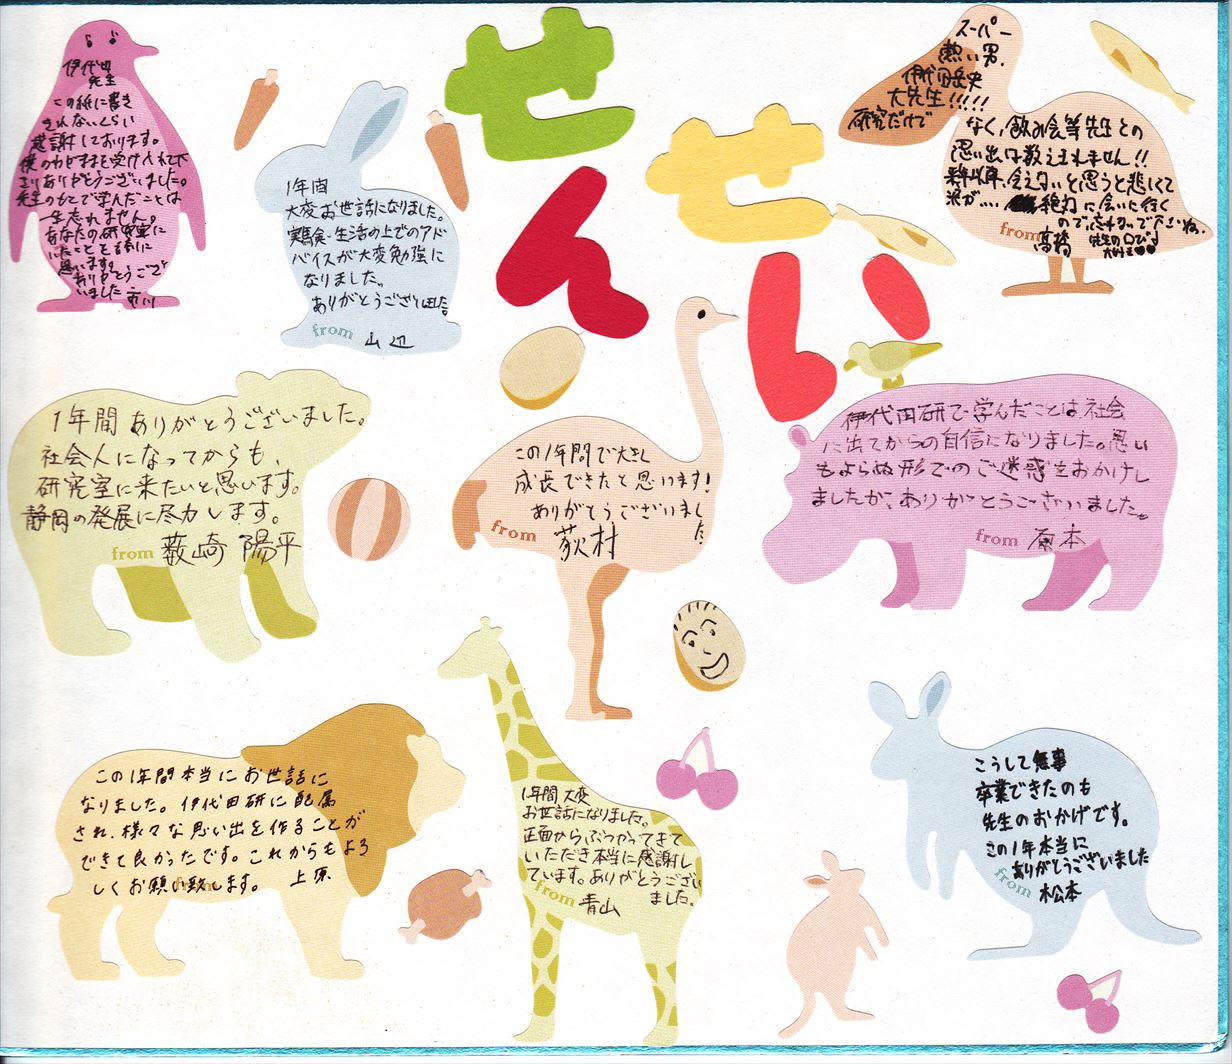 せんせい
伊代田
先生
この紙に書き
きれないくらい
感謝しております。
僕のわがままを受け入れて下
さりありがとうございました。
先生のもとで学んだことは
一生忘れません。
あなたの研究室に
いたことを誇りに
思います。
ありがとうござ
いました 市川
1年間
大変お世話になりました。
実験・生活の上でのアド
バイスが大変勉強に
なりました。
ありがとうございました
from
山辺
スーパー
熱い男。
伊代田岳史
大先生!!!!!
研究だけで
なく、飲み会等先生との
思い出は数えきれません!!
来年以降、会えないと思うと悲しくて
涙が… 絶対に会いに行く
ので忘れないで下さいね。
from
高橋
先生の口ぐせ
大好き♥♥
1年間ありがとうございました。
社会人になってからも、
研究室に来たいと思います。
静岡の発展に尽力します。
from 薮崎 陽平
この1年間で大きく
成長できたと思います!
ありがとうございまし
た
from 荻村
伊代田研で学んだことは、社会
に出てからの自信になりました。思い
もよらぬ形でのご迷惑をおかけし
ましたが、ありがとうございました。
from 原本
この1年間本当にお世話に
なりました。伊代田研に配属
され、様々な思い出を作ることが
できて良かったです。これからもよろ
しくお願い致します。 上原
from
1年間大変
お世話になりました。
正面からぶつかってきて
いただき本当に感謝し
ています。ありがとうござい
ました。
from 青山
こうして無事
卒業できたのも
先生のおかげです。
この1年本当に
ありがとうございました
from 松本